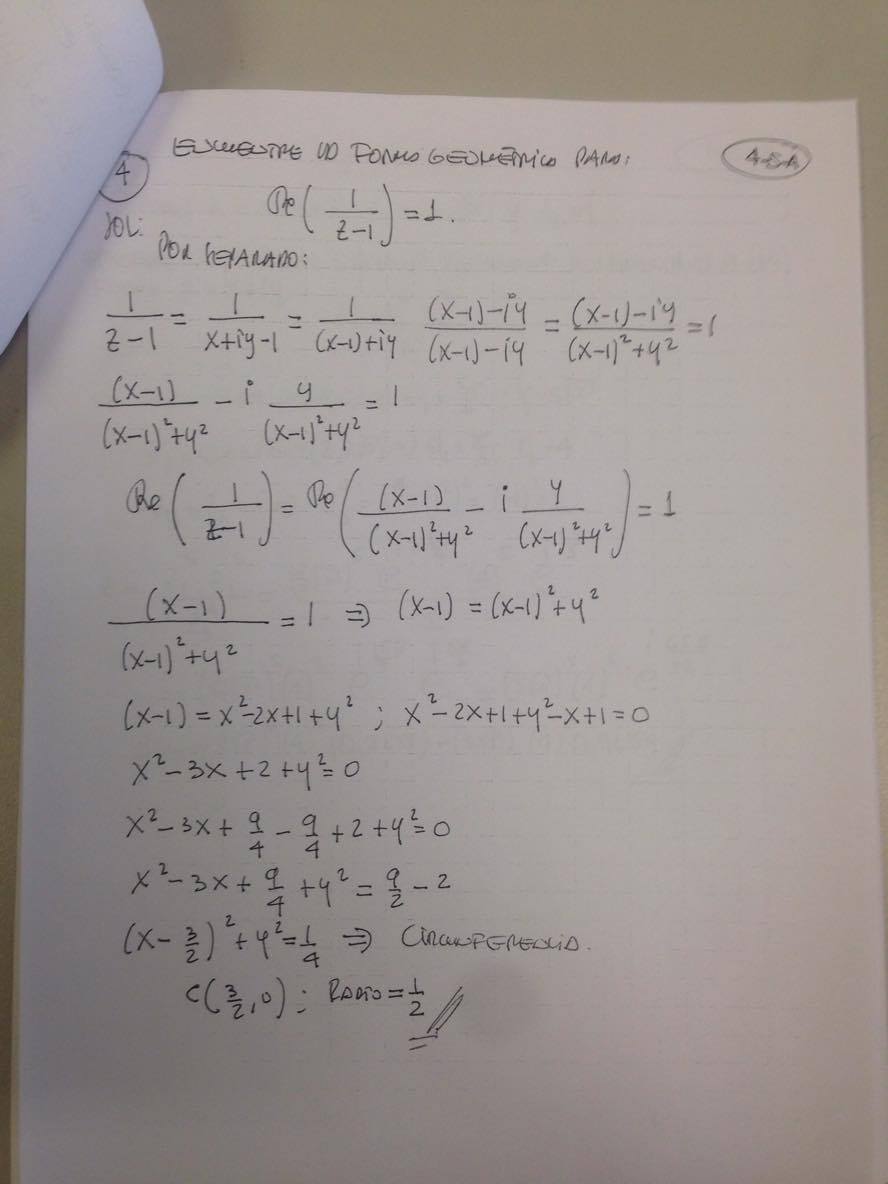 4 ENCUENTRE UD FORMA GEOMÉTRICA PARA: 4-8A
Re(1/(z-1)) = 1.
SOL:
POR SEPARADO:
1/(z-1) = 1/(x+iy-1) = 1/((x-1)+iy) ((x-1)-iy)/((x-1)-iy) = ((x-1)-iy)/((x-1)²+y²) = 1
(x-1)/((x-1)²+y²) - i y/((x-1)²+y²) = 1
Re(1/(z-1)) = Re((x-1)/((x-1)²+y²) - i y/((x-1)²+y²)) = 1
(x-1)/((x-1)²+y²) = 1 ⇒ (x-1) = (x-1)²+y²
(x-1) = x²-2x+1+y² ; x²-2x+1+y²-x+1=0
x²-3x+2+y²=0
x²-3x+9/4-9/4+2+y²=0
x²-3x+9/4+y²=9/2-2
(x-3/2)²+y²=1/4 ⇒ CIRCUNFERENCIA.
C(3/2,0); RADIO=1/2